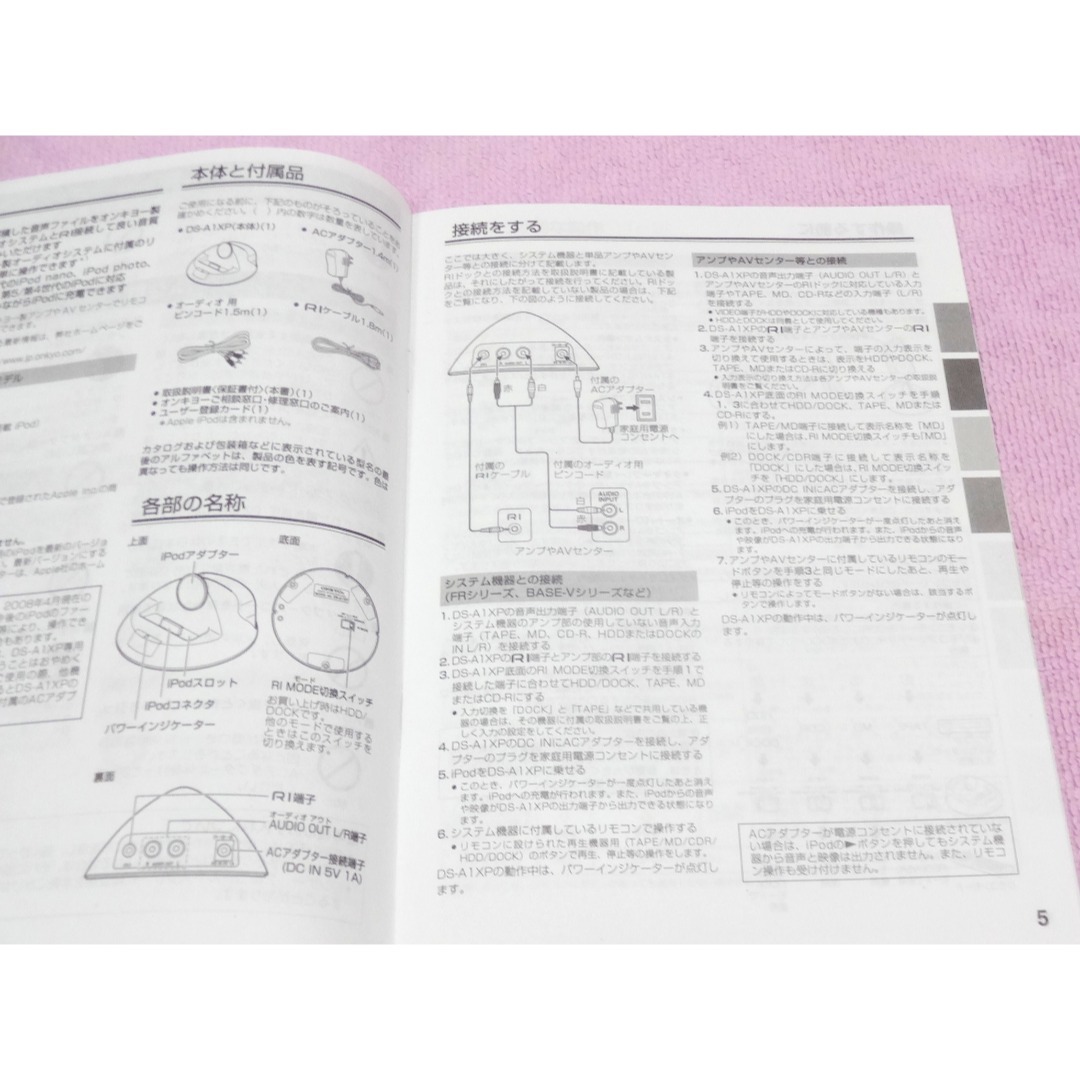 本体と付属品
ご使用になる前に、下記のものがそろっていることをお
確かめください。( )内の数字は数量を表しています。
● DS-A1XP(本体)(1)
● ACアダプター1.4m(1)
● オーディオ 用
ピンコード1.5m(1)
● RIケーブル1.8m(1)
● 取扱説明書〈保証書付〉(本書)(1)
● オンキヨーご相談窓口・修理窓口のご案内(1)
● ユーザー登録カード(1)
※Apple iPodは含まれません。
カタログおよび包装箱などに表示されている型名の最
後のアルファベットは、製品の色を表す記号です。色は
異なっても操作方法は同じです。
各部の名称
上面
iPodアダプター
底面
iPodスロット
iPodコネクタ
パワーインジケーター
モード
RI MODE切換スイッチ
お買い上げ時はHDD/
DOCKです。
他のモードで使用する
ときはこのスイッチを
切り換えます。
裏面
RI端子
オーディオ アウト
AUDIO OUT L/R端子
ACアダプター接続端子
(DC IN 5V 1A)
続した音声ファイルをオンキヨー製
オシステムとRI接続して良い音質
いただけます
製オーディオシステムに付属のリ
単に操作できます
代のiPod nano、iPod photo、
第5・第4世代のiPodに対応
ながらiPodに充電できます
ヨー製アンプやAVセンターでリモコ
できます。
最新情報は、弊社ホームページをご
www.jp.onkyo.com/
デル
載 iPod)
で登録されたApple Inc.の商
ません。
のiPodを最新のバージョ
い。最新バージョンにする
ターは、Apple社のホーム
2008年4月現在の
後のiPodのファー
間などにより、操作でき
もあります。
DS-A1XP専用
うことはおやめく
で使用の際、他機
るとDS-A1XPの
付属のACアダプ
接続をする
ここでは大きく、システム機器と単品アンプやAVセン
ター等との接続に分けて記載します。
RIドックとの接続方法を取扱説明書に記載している製
品は、それにしたがって接続を行ってください。RIドッ
クとの接続方法を記載していない製品の場合は、下記
をご覧になり、下の図のように接続してください。
赤
白
付属の
ACアダプター
家庭用電源
コンセントへ
付属の
RIケーブル
付属のオーディオ用
ピンコード
RI
白
赤
AUDIO
INPUT
L
R
アンプやAVセンター
システム機器との接続
(FRシリーズ、BASE-Vシリーズなど)
1. DS-A1XPの音声出力端子（AUDIO OUT L/R）と
システム機器のアンプ部の使用していない音声入力
端子（TAPE、MD、CD-R、HDDまたはDOCKの
IN L/R）を接続する
2. DS-A1XPのRI端子とアンプ部のRI端子を接続する
3. DS-A1XP底面のRI MODE切換スイッチを手順1で
接続した端子に合わせてHDD/DOCK、TAPE、MD
またはCD-Rにする
● 入力切換を「DOCK」と「TAPE」などで共用している機
器の場合は、その機器に付属の取扱説明書をご覧の上、正
しく入力の設定をしてください。
4. DS-A1XPのDC INにACアダプターを接続し、アダ
プターのプラグを家庭用電源コンセントに接続する
5. iPodをDS-A1XPに乗せる
● このとき、パワーインジケーターが一度点灯したあと消え
ます。iPodへの充電が行われます。また、iPodからの音声
や映像がDS-A1XPの出力端子から出力できる状態になり
ます。
6. システム機器に付属しているリモコンで操作する
● リモコンに設けられた再生機器用（TAPE/MD/CDR/
HDD/DOCK）のボタンで再生、停止等の操作をします。
DS-A1XPの動作中は、パワーインジケーターが点灯し
ます。
アンプやAVセンター等との接続
1. DS-A1XPの音声出力端子（AUDIO OUT L/R）と
アンプやAVセンターのRIドックに対応している入力
端子やTAPE、MD、CD-Rなどの入力端子（L/R）
を接続する
● VIDEO端子がHDDやDOCKに対応している機種もあります。
● HDDとDOCKは同義として使用してください。
2. DS-A1XPのRI端子とアンプやAVセンターのRI
端子を接続する
3. アンプやAVセンターによって、端子の入力表示を
切り換えて使用するときは、表示をHDDやDOCK、
TAPE、MDまたはCD-Rに切り換える
● 入力表示の切り換え方法は各アンプやAVセンターの取扱説
明書をご覧ください。
4. DS-A1XP底面のRI MODE切換スイッチを手順
1、3に合わせてHDD/DOCK、TAPE、MDまたは
CD-Rにする。
例1） TAPE/MD端子に接続して表示名称を「MD」
にした場合は、RI MODE切換スイッチも「MD」
にします。
例2） DOCK/CDR端子に接続して表示名称を
「DOCK」にした場合は、RI MODE切換スイッ
チを「HDD/DOCK」にします。
5. DS-A1XPのDC INにACアダプターを接続し、アダ
プターのプラグを家庭用電源コンセントに接続する
6. iPodをDS-A1XPに乗せる
● このとき、パワーインジケーターが一度点灯したあと消え
ます。iPodへの充電が行われます。また、iPodからの音声
や映像がDS-A1XPの出力端子から出力できる状態になり
ます。
7. アンプやAVセンターに付属しているリモコンのモー
ドボタンを手順3と同じモードにしたあと、再生や
停止等の操作をする
● リモコンによってモードボタンがない場合は、該当するボ
タンで操作します。
DS-A1XPの動作中は、パワーインジケーターが点灯し
ます。
ACアダプターが電源コンセントに接続されていな
い場合は、iPodの▶ボタンを押してもシステム機
器から音声と映像は出力されません。また、リモコ
ン操作も受け付けません。
5